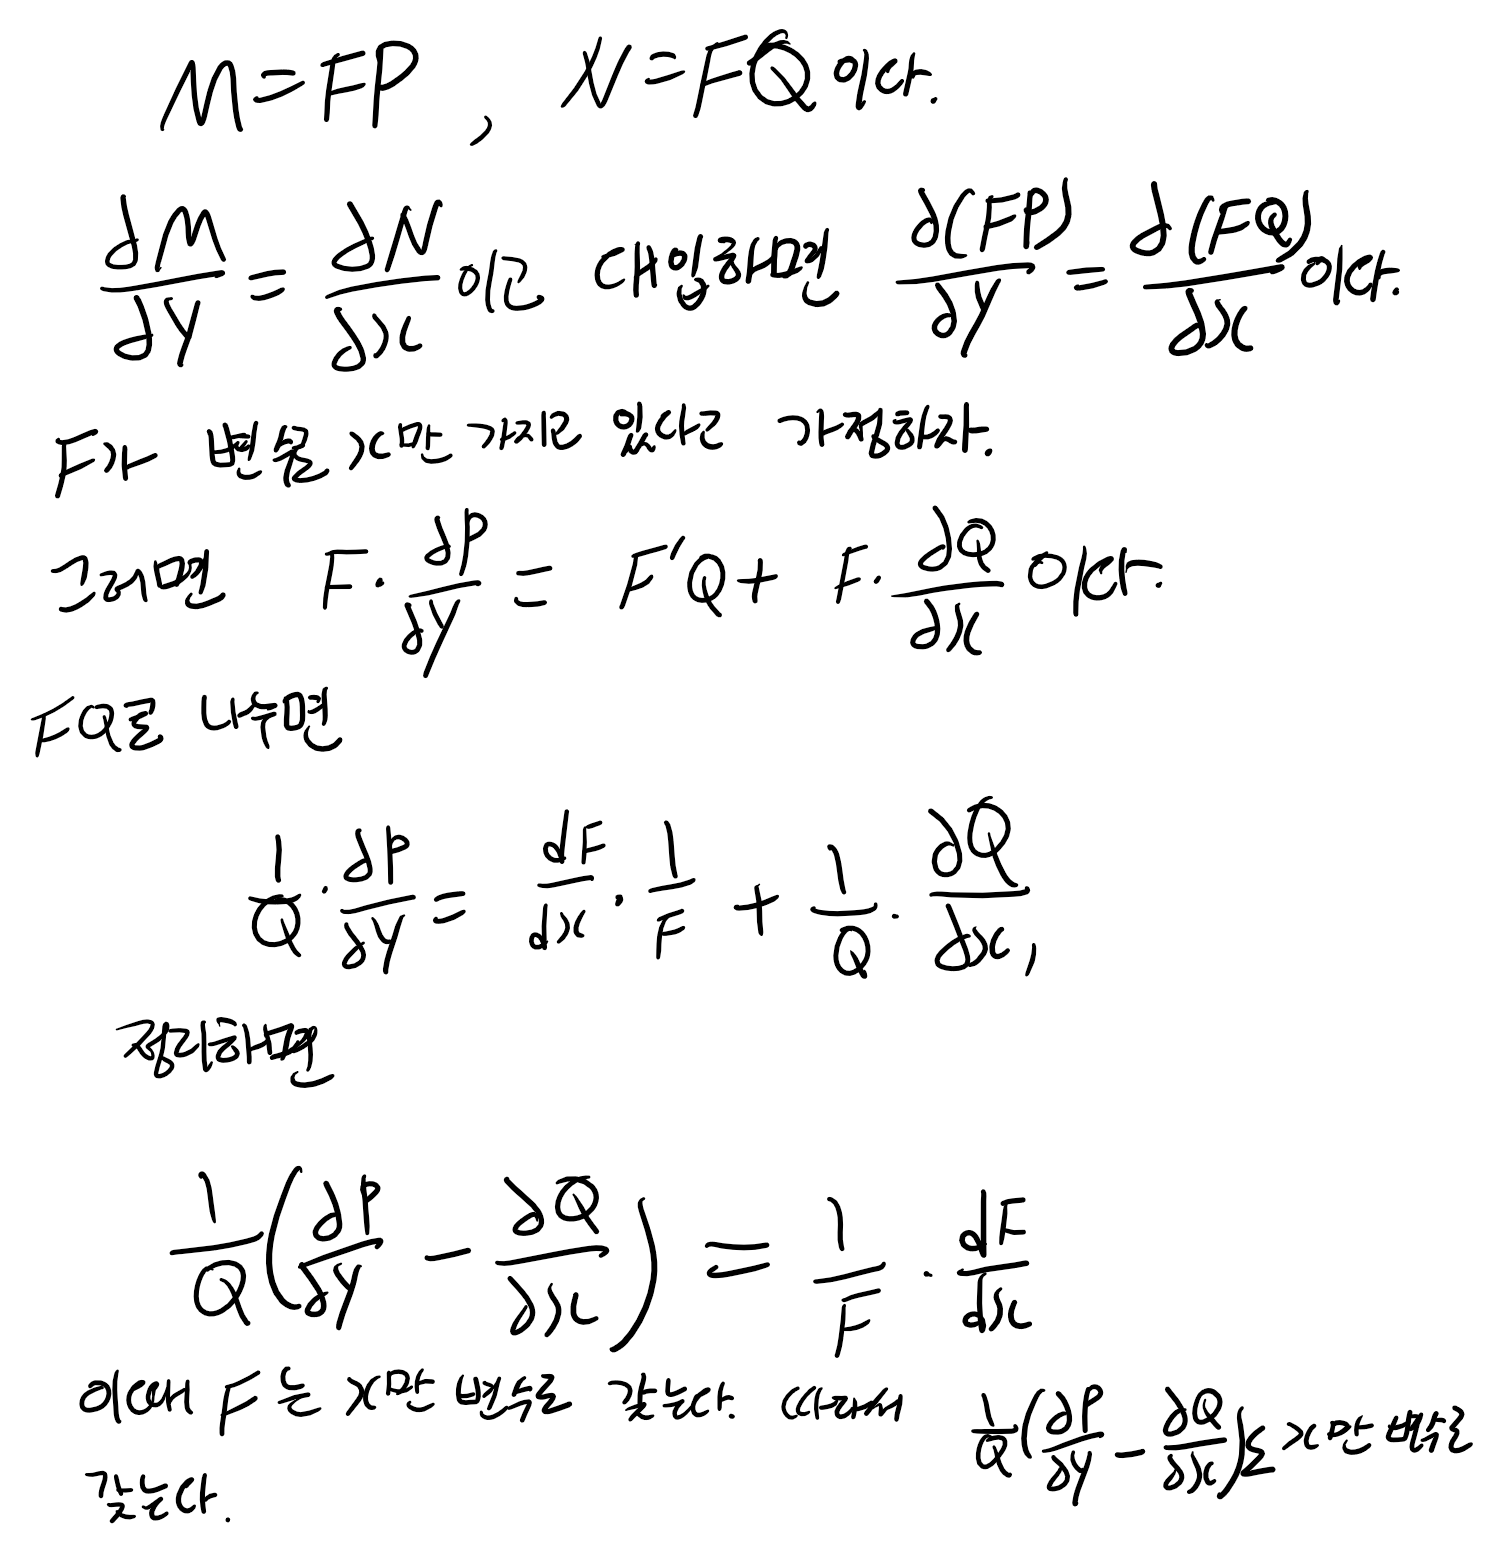 M=FP , N=FQ 이다.
∂M/∂y = ∂N/∂x 이고 대입하면 ∂(FP)/∂y = ∂(FQ)/∂x 이다.
F가 변수를 x만 가지고 있다고 가정하자.
그러면 F·∂P/∂y = F'Q + F·∂Q/∂x 이다.
FQ로 나누면
1/Q · ∂P/∂y = dF/dx · 1/F + 1/Q · ∂Q/∂x ,
정리하면
1/Q (∂P/∂y − ∂Q/∂x) = 1/F · dF/dx
이때 F는 x만 변수로 갖는다. 따라서 1/Q (∂P/∂y − ∂Q/∂x)도 x만 변수로
갖는다.